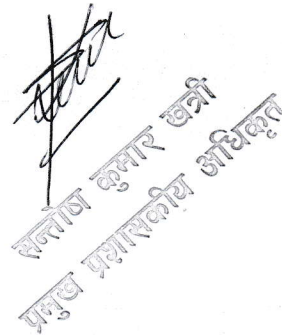 सन्तोष कुमार खत्री
प्रमुख प्रशासकीय अधिकृत